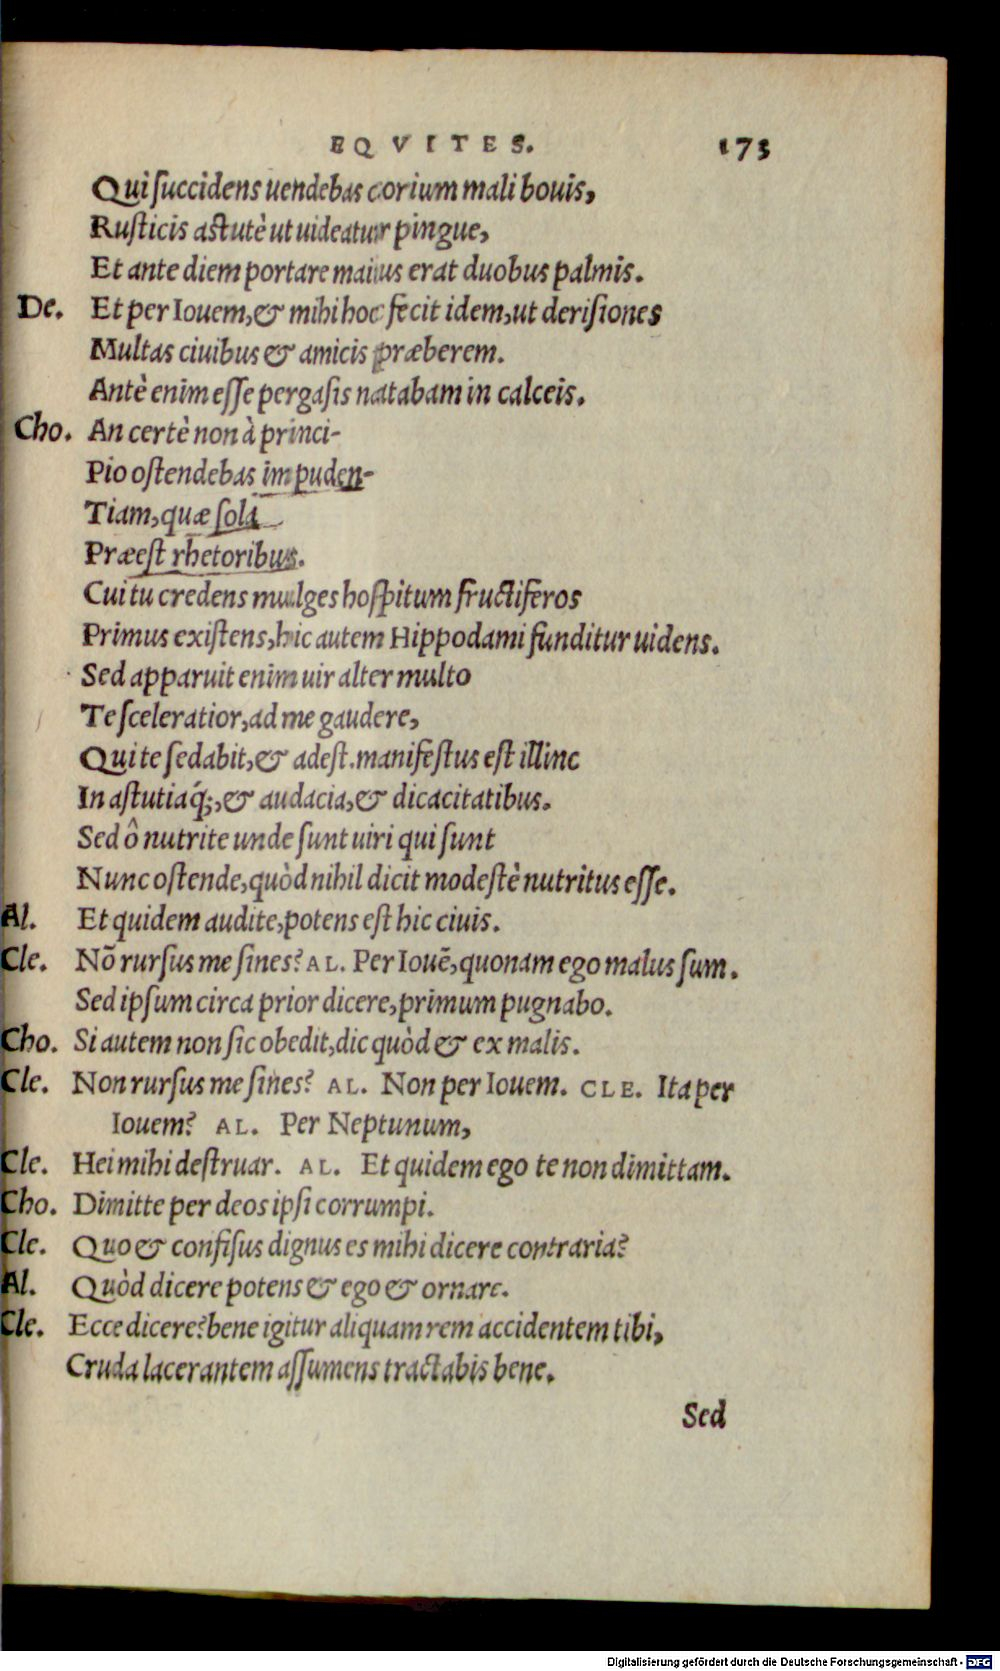 EQVITES. 173
Qui ſuccidens uendebas corium mali bouis,
Ruſticis aſtutè ut uideatur pingue,
Et ante diem portare maius erat duobus palmis.
De. Et per Iouem, & mihi hoc fecit idem, ut deriſiones
Multas ciuibus & amicis præberem.
Antè enim eſſe pergaſis natabam in calceis.
Cho. An certè non à princi-
Pio oſtendebas impuden-
Tiam, quæ ſola
Præeſt rhetoribus.
Cui tu credens mulges hoſpitum fructiferos
Primus exiſtens, hic autem Hippodami funditur uidens.
Sed apparuit enim uir alter multo
Te ſceleratior, ad me gaudere,
Qui te ſedabit, & adeſt. manifeſtus eſt illinc
In aſtutiaq́;, & audacia, & dicacitatibus.
Sed ô nutrite unde ſunt uiri qui ſunt
Nunc oſtende, quòd nihil dicit modeſtè nutritus eſſe.
Al. Et quidem audite, potens eſt hic ciuis.
Cle. Nō rurſus me ſines? AL. Per Iouē, quonam ego malus ſum.
Sed ipſum circa prior dicere, primum pugnabo.
Cho. Si autem non ſic obedit, dic quòd & ex malis.
Cle. Non rurſus me ſines? AL. Non per Iouem. CLE. Ita per
Iouem? AL. Per Neptunum,
Cle. Hei mihi deſtruar. AL. Et quidem ego te non dimittam.
Cho. Dimitte per deos ipſi corrumpi.
Cle. Quo & confiſus dignus es mihi dicere contraria?
Al. Quòd dicere potens & ego & ornare.
Cle. Ecce dicere? bene igitur aliquam rem accidentem tibi,
Cruda lacerantem aſſumens tractabis bene.
Sed
Digitalisierung gefördert durch die Deutsche Forschungsgemeinschaft - DFG